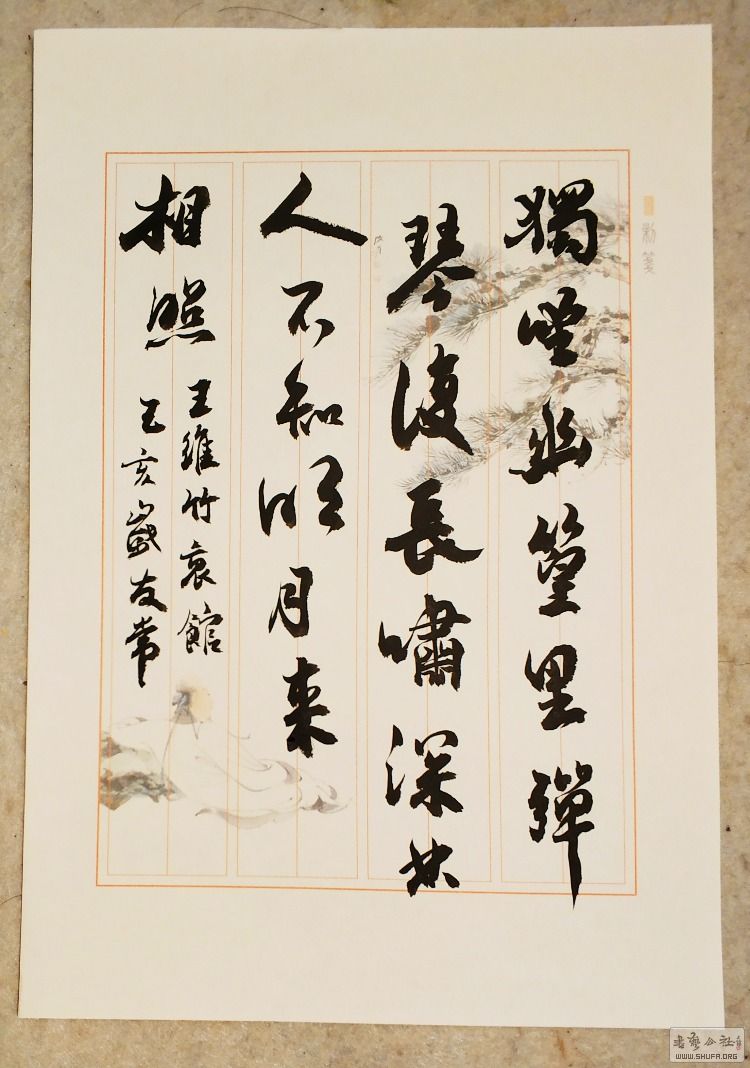 獨坐幽篁里彈
琴復長嘯深林
人不知明月来
相照
王維竹裏館
乙亥歲友常
制箋
書藝公社
WWW.SHUFA.ORG